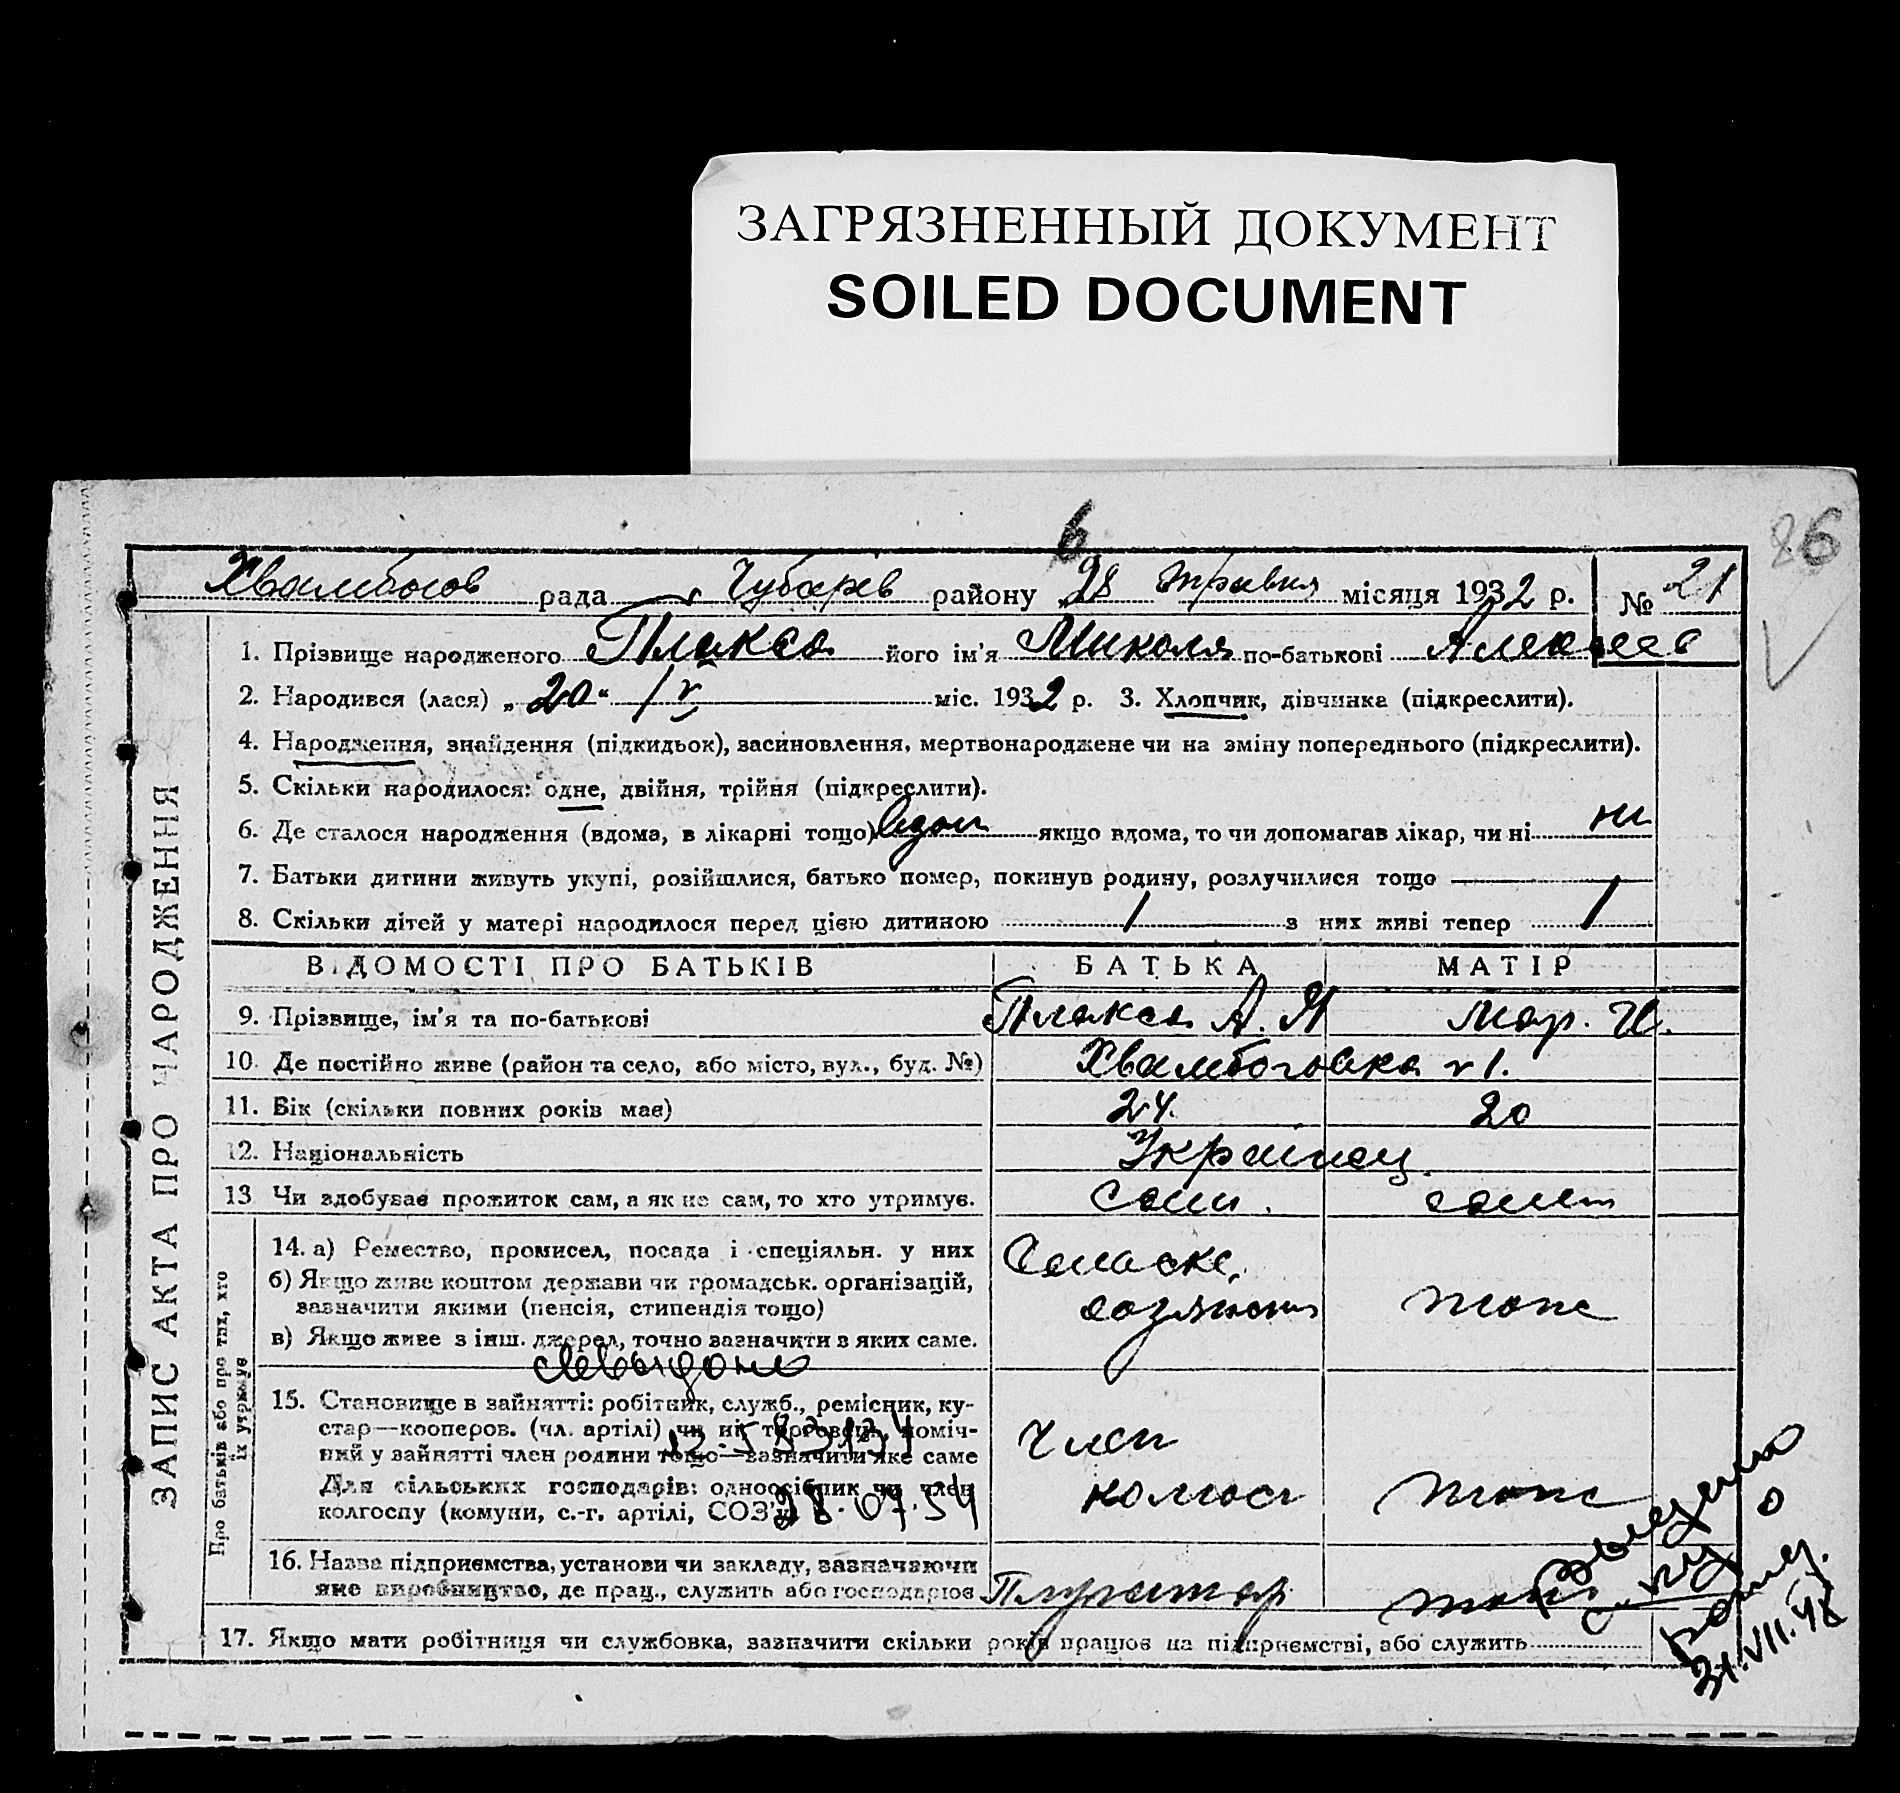 ЗАГРЯЗНЕННЫЙ ДОКУМЕНТ
SOILED DOCUMENT
6
26
рада Чубарів району 28 травня місяця 1932 р. № 21
1. Прізвище народженого Плакса його ім'я Миколя по-батькові Алексеев
2. Народився (лася) „20“ /V міс. 1932 р. 3. Хлопчик, дівчинка (підкреслити).
4. Народження, знайдення (підкидьок), засиновлення, мертвонароджене чи на зміну попереднього (підкреслити).
5. Скільки народилося: одне, двійня, трійня (підкреслити).
6. Де сталося народження (вдома, в лікарні тощо) вдом якщо вдома, то чи допомагав лікар, чи ні ни
7. Батьки дитини живуть укупі, розійшлися, батько помер, покинув родину, розлучилися тощо
8. Скільки дітей у матері народилося перед цією дитиною 1 з них живі тепер 1
ВІДОМОСТІ ПРО БАТЬКІВ БАТЬКА МАТІР
9. Прізвище, ім'я та по-батькові Плакса А. Я Мар. И.
10. Де постійно живе (район та село, або місто, вул., буд. №)
11. Вік (скільки повних років має) 24. 20
12. Національність Українец.
13 Чи здобуває прожиток сам, а як не сам, то хто утримує. сам.
14. а) Ремество, промисел, посада і спеціяльн. у них
б) Якщо живе коштом держави чи громадськ. організацій,
зазначити якими (пенсія, стипендія тощо)
в) Якщо живе з інш. джерел, точно зазначити з яких саме.
15. Становище в зайнятті: робітник, служб., ремісник, ку-
стар—кооперов. (чл. артілі) чи ні, торговець, поміч-
ний у зайнятті член родини тощо—зазначити яке саме Член
Для сільських господарів: односібник чи член
колгоспу (комуни, с.-г. артілі, СОЗ'у)
28.07.54
16. Назва підприємства, установи чи закладу, зазначаючи
яке виробництво, де прац., служить або господарює
17. Якщо мати робітниця чи службовка, зазначити скільки років працює на підприємстві, або служить
31.VII.48
ЗАПИС АКТА ПРО НАРОДЖЕННЯ
Про батьків або про тих, хто
їх утримує